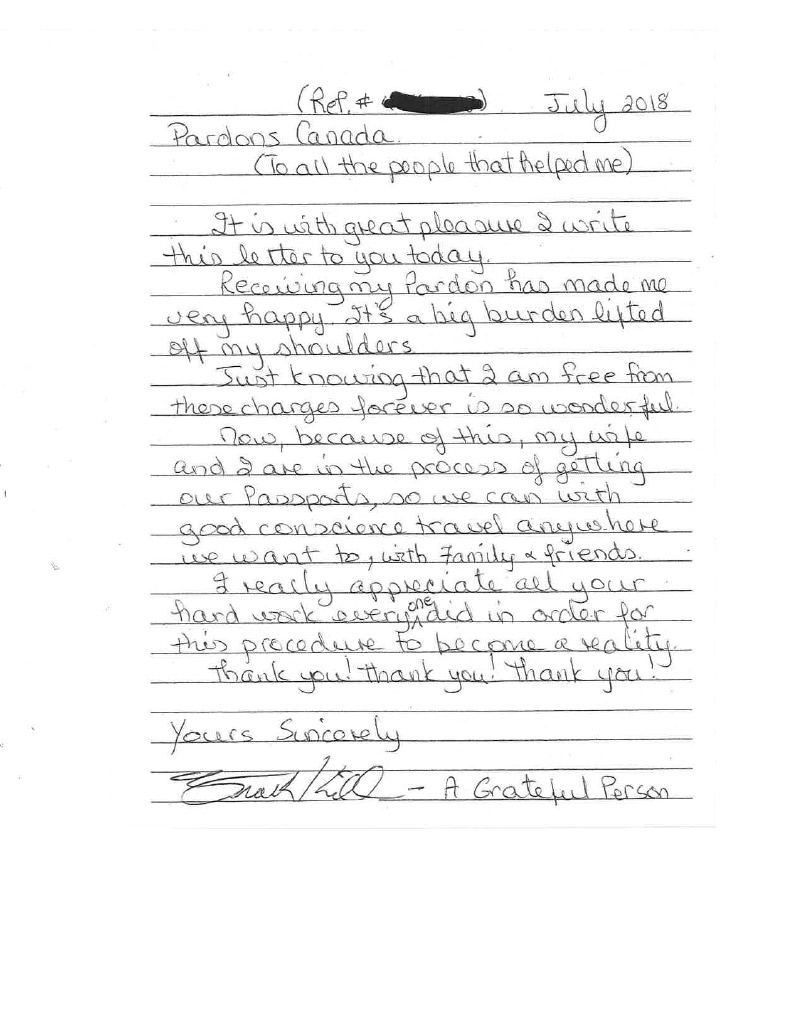 (Ref. # ) July 2018
Pardons Canada.
(To all the people that helped me)
It is with great pleasure I write
this letter to you today.
Receiving my Pardon has made me
very happy. It's a big burden lifted
off my shoulders
Just knowing that I am free from
these charges forever is so wonderful.
Now, because of this, my wife
and I are in the process of getting
our Passports, so we can with
good conscience travel anywhere
we want to, with Family & friends.
I really appreciate all your
hard work every one did in order for
this procedure to become a reality.
Thank you! Thank you! Thank you!
Yours Sincerely
- A Grateful Person